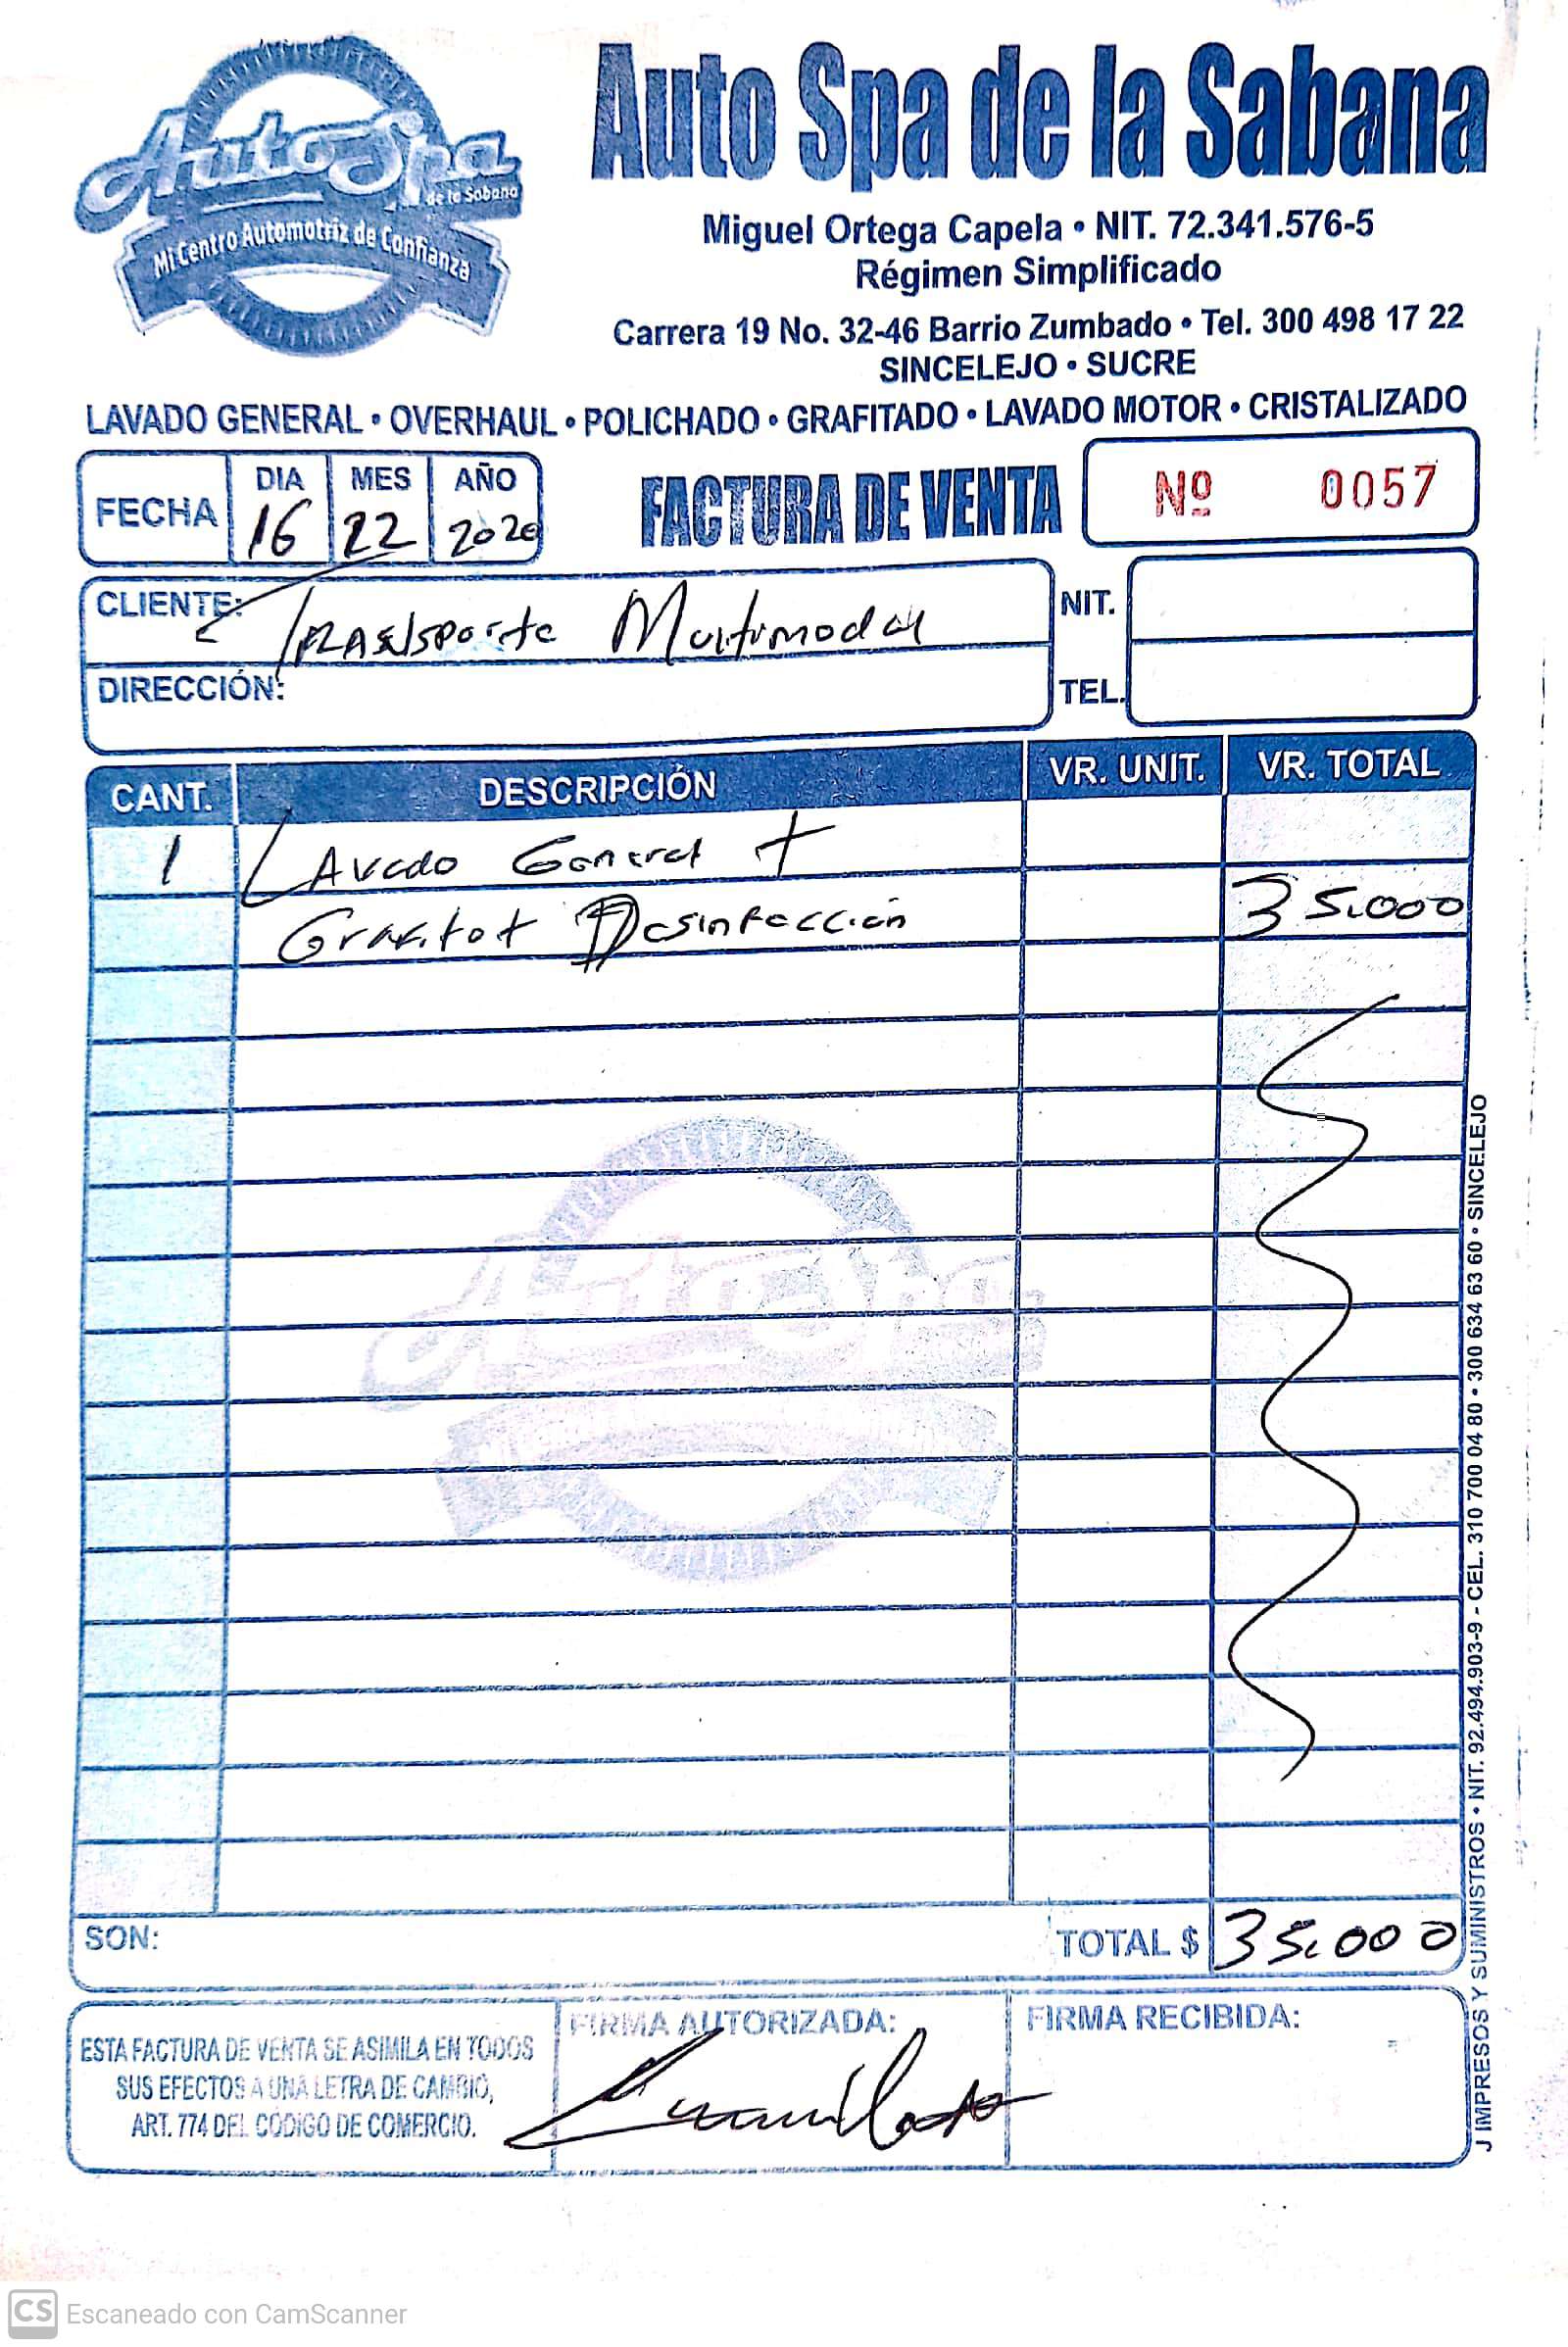 Auto Spa
de la Sabana
Mi Centro Automotriz de Confianza
Auto Spa de la Sabana
Miguel Ortega Capela • NIT. 72.341.576-5
Régimen Simplificado
Carrera 19 No. 32-46 Barrio Zumbado • Tel. 300 498 17 22
SINCELEJO • SUCRE
LAVADO GENERAL • OVERHAUL • POLICHADO • GRAFITADO • LAVADO MOTOR • CRISTALIZADO
FECHA DIA MES AÑO
16 22 2020
FACTURA DE VENTA
Nº 0057
CLIENTE: Transporte Multimodal
NIT.
DIRECCIÓN:
TEL.
CANT. DESCRIPCIÓN VR. UNIT. VR. TOTAL
1 Lavado General +
Desinfección 35.000
SON:
TOTAL $ 35.000
ESTA FACTURA DE VENTA SE ASIMILA EN TODOS
SUS EFECTOS A UNA LETRA DE CAMBIO,
ART. 774 DEL CÓDIGO DE COMERCIO.
FIRMA AUTORIZADA:
FIRMA RECIBIDA:
J IMPRESOS Y SUMINISTROS • NIT. 92.494.903-9 - CEL. 310 700 04 80 • 300 634 63 60 • SINCELEJO
CS Escaneado con CamScanner